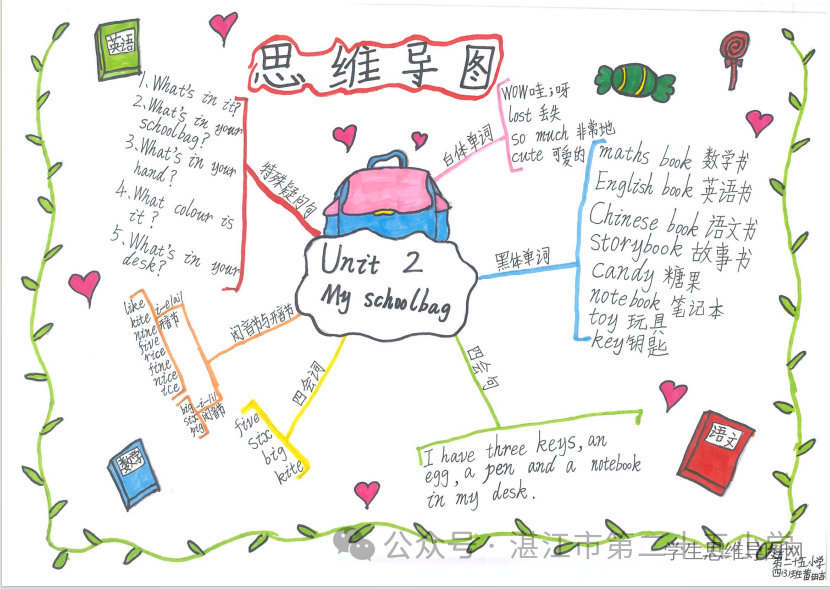 思维导图
英语
1、What's in it?
2、What's in your
schoolbag?
3、What's in your
hand?
4、What colour is
it?
5、What's in your
desk?
特殊疑问句
白体单词
WOW 哇;呀
lost 丢失
so much 非常地
cute 可爱的
黑体单词
maths book 数学书
English book 英语书
Chinese book 语文书
storybook 故事书
candy 糖果
notebook 笔记本
toy 玩具
key 钥匙
Unit 2
My schoolbag
闭音节与开音节
like
kite
nine
five
rice
fine
nice
ice
i-e/ai/
开音节
big
six
big
-i-/i/
闭音节
四会词
five
six
big
kite
四会句
I have three keys, an
egg, a pen and a notebook
in my desk.
数学
语文
公众号·湛江市第二十五小学
学生思维导图网
第二十五小学
四(3)班